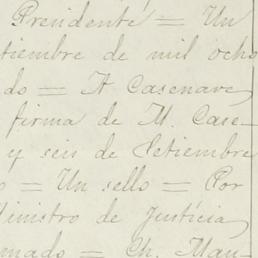 Presidente = Un
tiembre de mil ocho
do = A Casenave
firma de M. Case-
y seis de Setiembre
o = Un sello = Por
inistro de Justicia
mado = Ch. Mau-